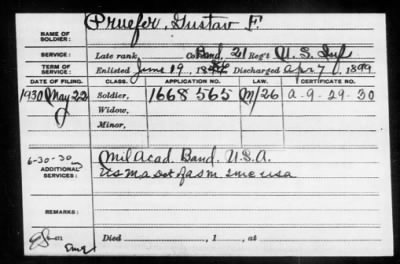 NAME OF SOLDIER: Pruefer, Gustav F.
SERVICE: Late rank, Co. Band, 21 Reg't U. S. Inf
TERM OF SERVICE: Enlisted June 19, 18 Discharged Apr 7, 1899
DATE OF FILING. CLASS. APPLICATION NO. LAW. CERTIFICATE NO.
1930 May 22 Soldier, 1668 565 M/26 a-9-29-30
Widow,
Minor,
6-30-30
ADDITIONAL SERVICES: Mil Acad. Band, U.S.A.
us ma det
REMARKS:
Died , 1 , at